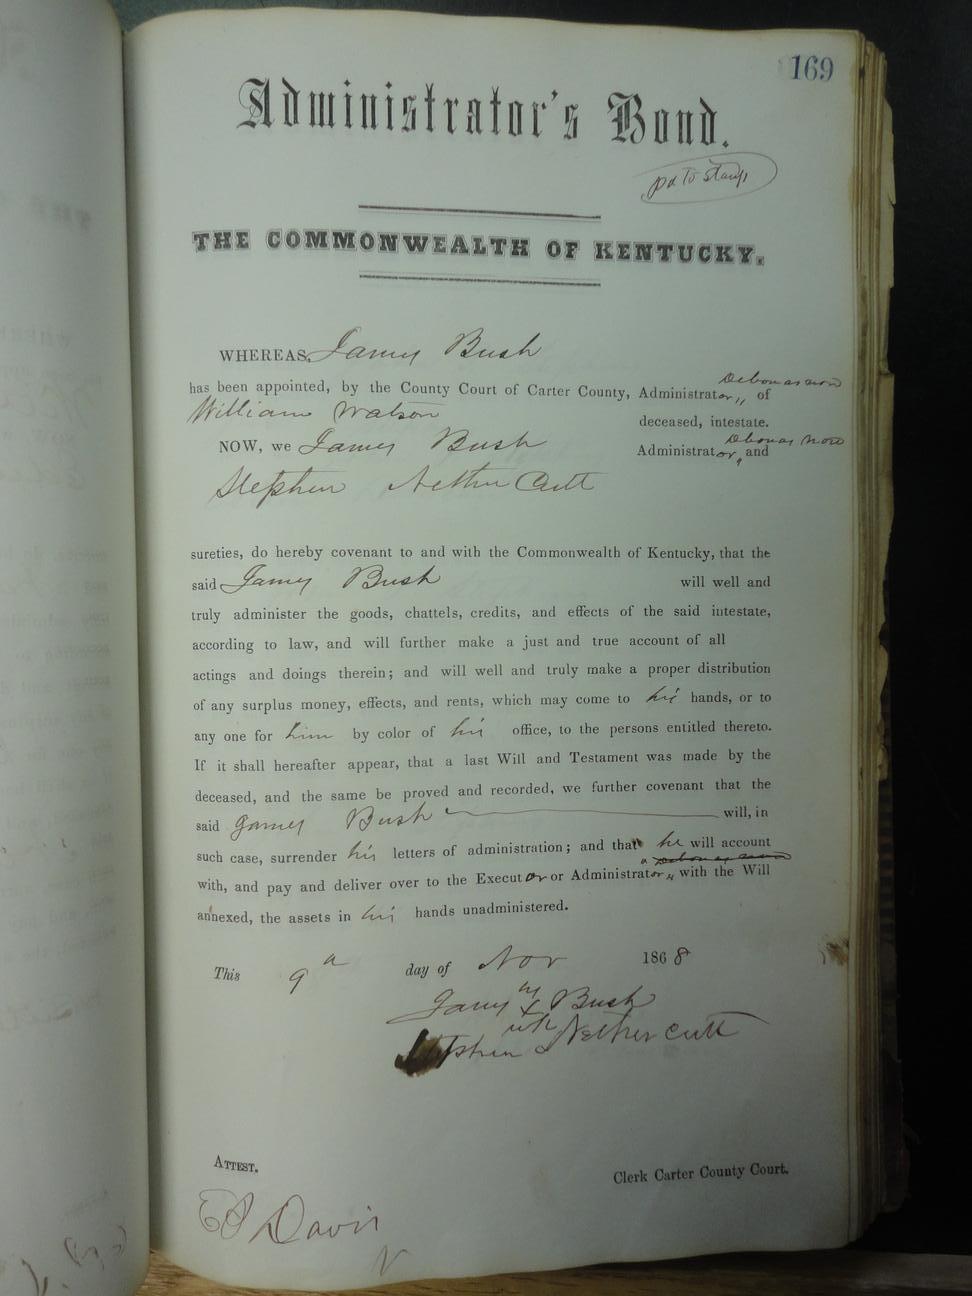 169
Administrator's Bond.
pd to stamp
THE COMMONWEALTH OF KENTUCKY.
WHEREAS, James Bush
has been appointed, by the County Court of Carter County, Administrator, Debonas non of
William Watson deceased, intestate.
NOW, we James Bush Administrator, Debonas non and
Stephen Nethercutt
sureties, do hereby covenant to and with the Commonwealth of Kentucky, that the
said James Bush will well and
truly administer the goods, chattels, credits, and effects of the said intestate,
according to law, and will further make a just and true account of all
actings and doings therein; and will well and truly make a proper distribution
of any surplus money, effects, and rents, which may come to his hands, or to
any one for him by color of his office, to the persons entitled thereto.
If it shall hereafter appear, that a last Will and Testament was made by the
deceased, and the same be proved and recorded, we further covenant that the
said James Bush will, in
such case, surrender his letters of administration; and that he will account
with, and pay and deliver over to the Executor or Administrator, with the Will
annexed, the assets in his hands unadministered.
This 9th day of Nov 1868
James X Bush
Stephen Nethercutt
ATTEST.
Clerk Carter County Court.
Davis